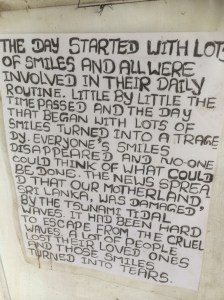 THE DAY STARTED WITH LOTS
OF SMILES AND ALL WERE
INVOLVED IN THEIR DAILY
ROUTINE. LITTLE BY LITTLE THE
TIME PASSED AND THE DAY
THAT BEGAN WITH LOTS OF
SMILES TURNED INTO A TRAGE
SY. EVERYONE'S SMILES
DISAPPEARED AND NO-ONE
COULD THINK OF WHAT COULD
BE, DONE. THE NEWS SPREA
D, THAT OUR MOTHERLAND,
SRI LANKA, WAS DAMAGED,
BY THE TSUNAMI TIDAL
WAVES. IT HAD BEEN HARD
TO ESCAPE FROM THE CRUEL
WAVES. A LOT OF PEOPLE
LOST THEIR LOVED ONES
AND THOSE SMILES
TURNED INTO TEARS.